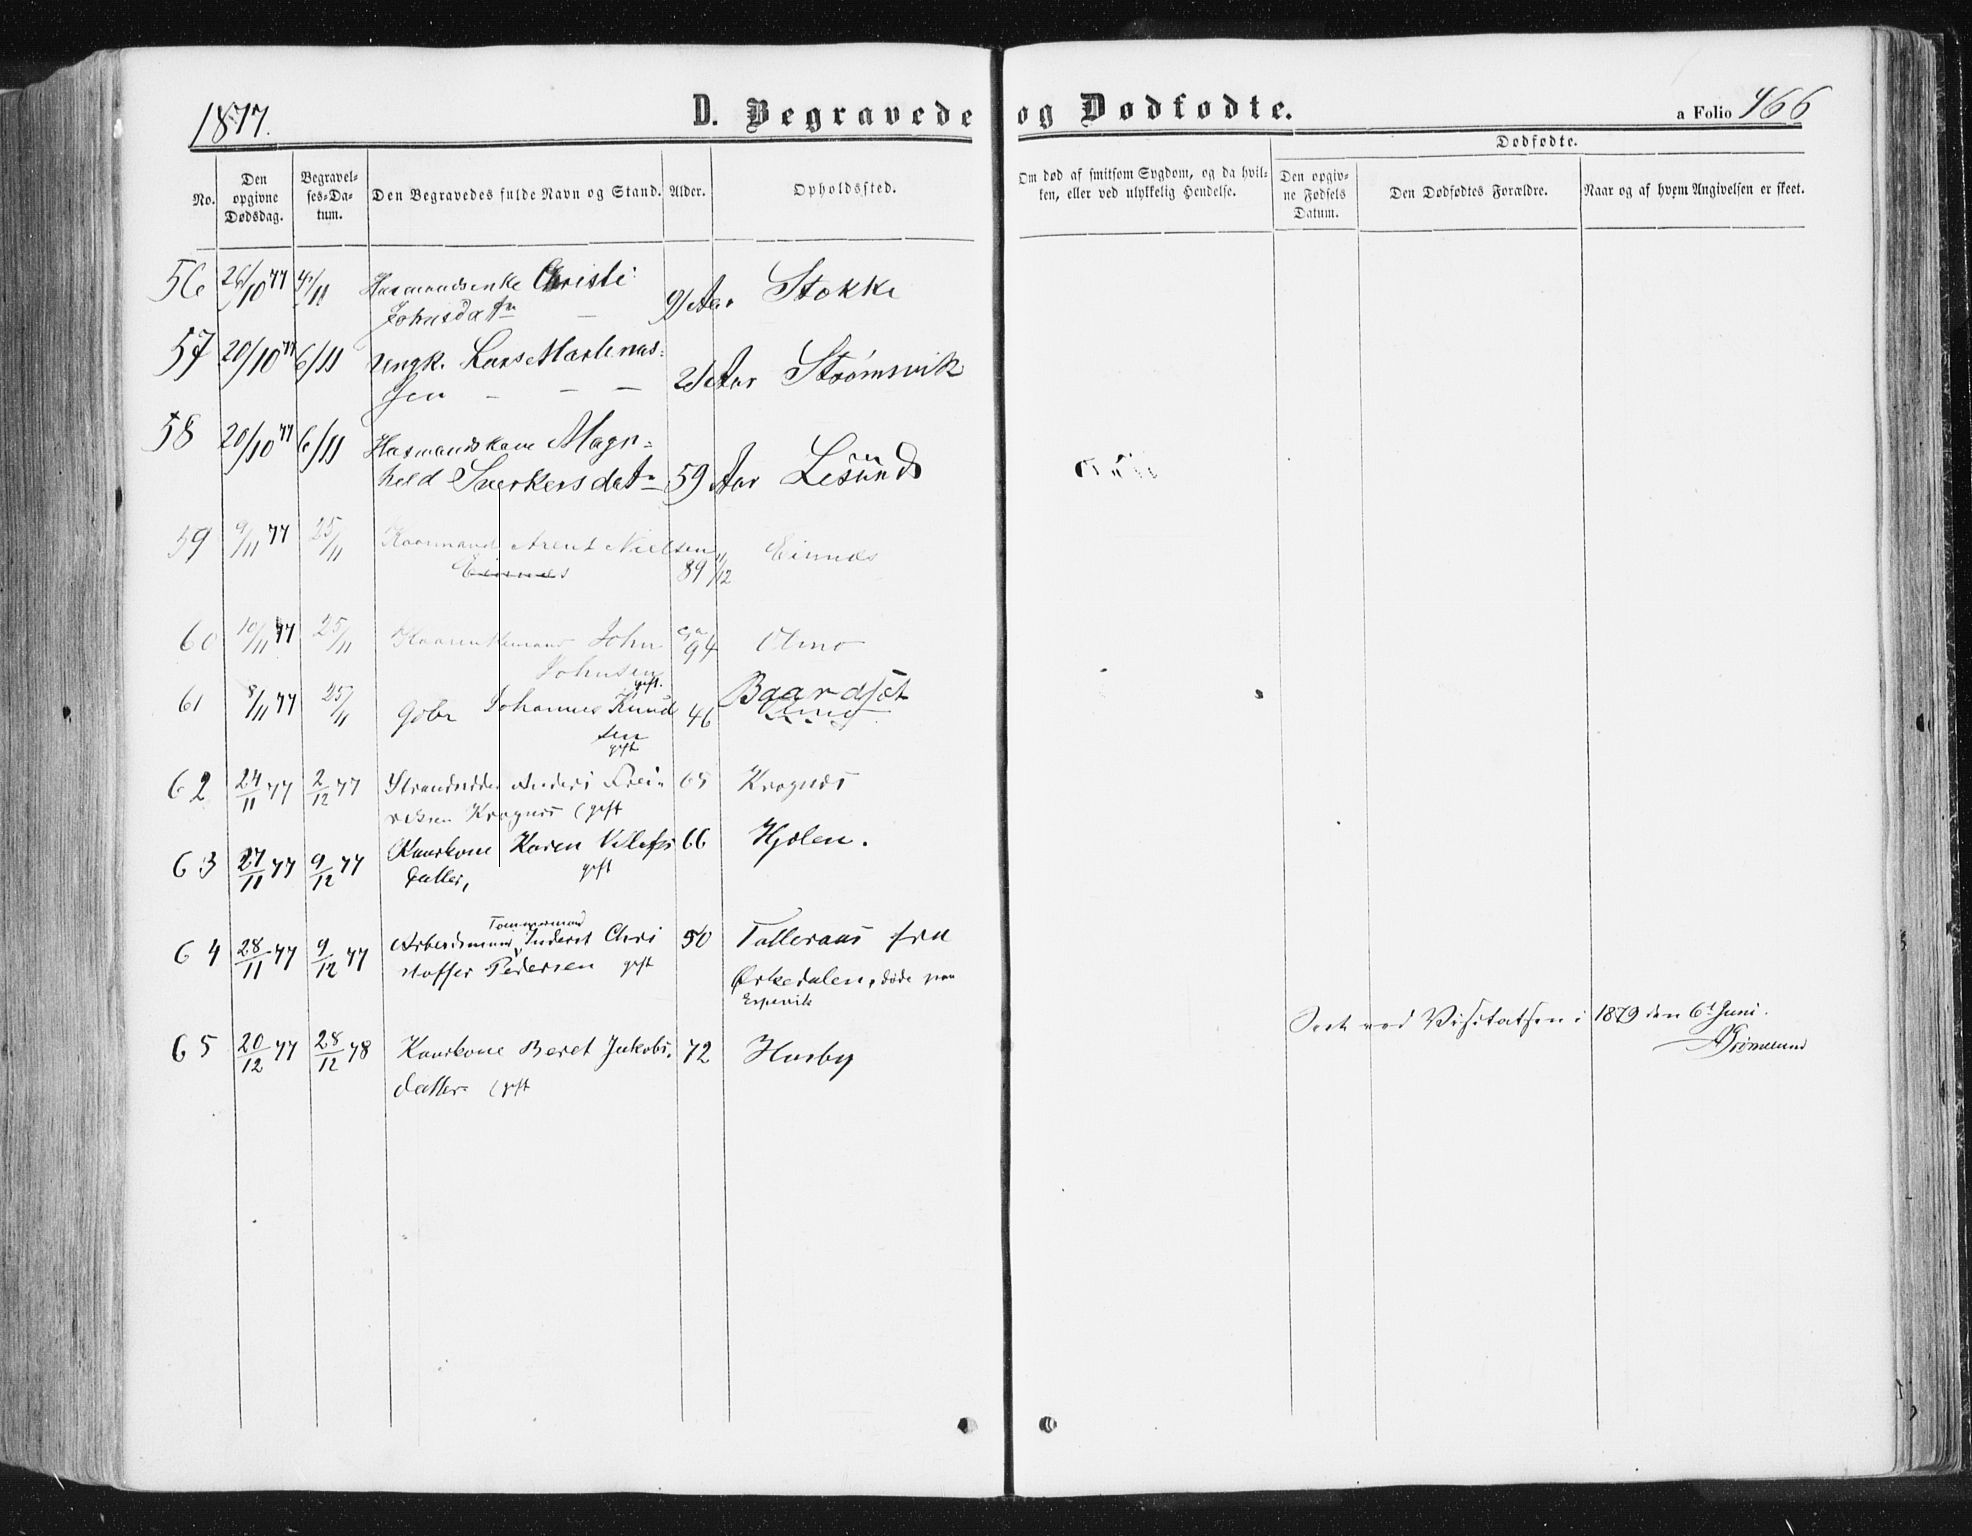 1877.
D. Begravede og Dødfødte.
a Folio 466
Dødfødte.
No.
Den opgivne Dødsdag.
Begravelses-Datum.
Den Begravedes fulde Navn og Stand.
Alder.
Opholdssted.
Om død af smitsom Sygdom, og da hvilken, eller ved ulykkelig Hendelse.
Den opgivne Fødsels Datum.
Den Dødfødtes Forældre.
Naar og af hvem Angivelsen er skeet.
56 26/10 77 4/11 Christi
Johnsdatr 91 Aar Stokke
57 20/10 77 6/11 Ungk. Lars Martenus=
sen 21 Aar Strømsvik
58 20/10 77 6/11 Husmandskone Magn=
hild Sverkersdatr 59 Aar Lesund
59 9/11 77 25/11 Kaarmand Arent Nielsen
89 11/12
60 10/11 77 25/11 John
Johnsen ca 94 Olmo
61 8/11 77 25/11 Gbr Johannes Knud
sen gift 46 Baardset
62 24/11 77 2/12 77 Strandsidder Anders
Kragnes (gift 65 Kragnes
63 27/11 77 9/12 77 Kaarkone Karen
datter, gift 66 Hjølen.
64 28/11 77 9/12 77 Arbeidsmand Tømmermand Chri
stoffer Pedersen gift 50 fra
Ørkedalen, døde paa
Espevik
65 20/12 77 28/12 78 Kaarkone Beret Jakobs.
datter (gift 72 Husby
Seet ved Visitatsen i 1879 den 6te Juni.